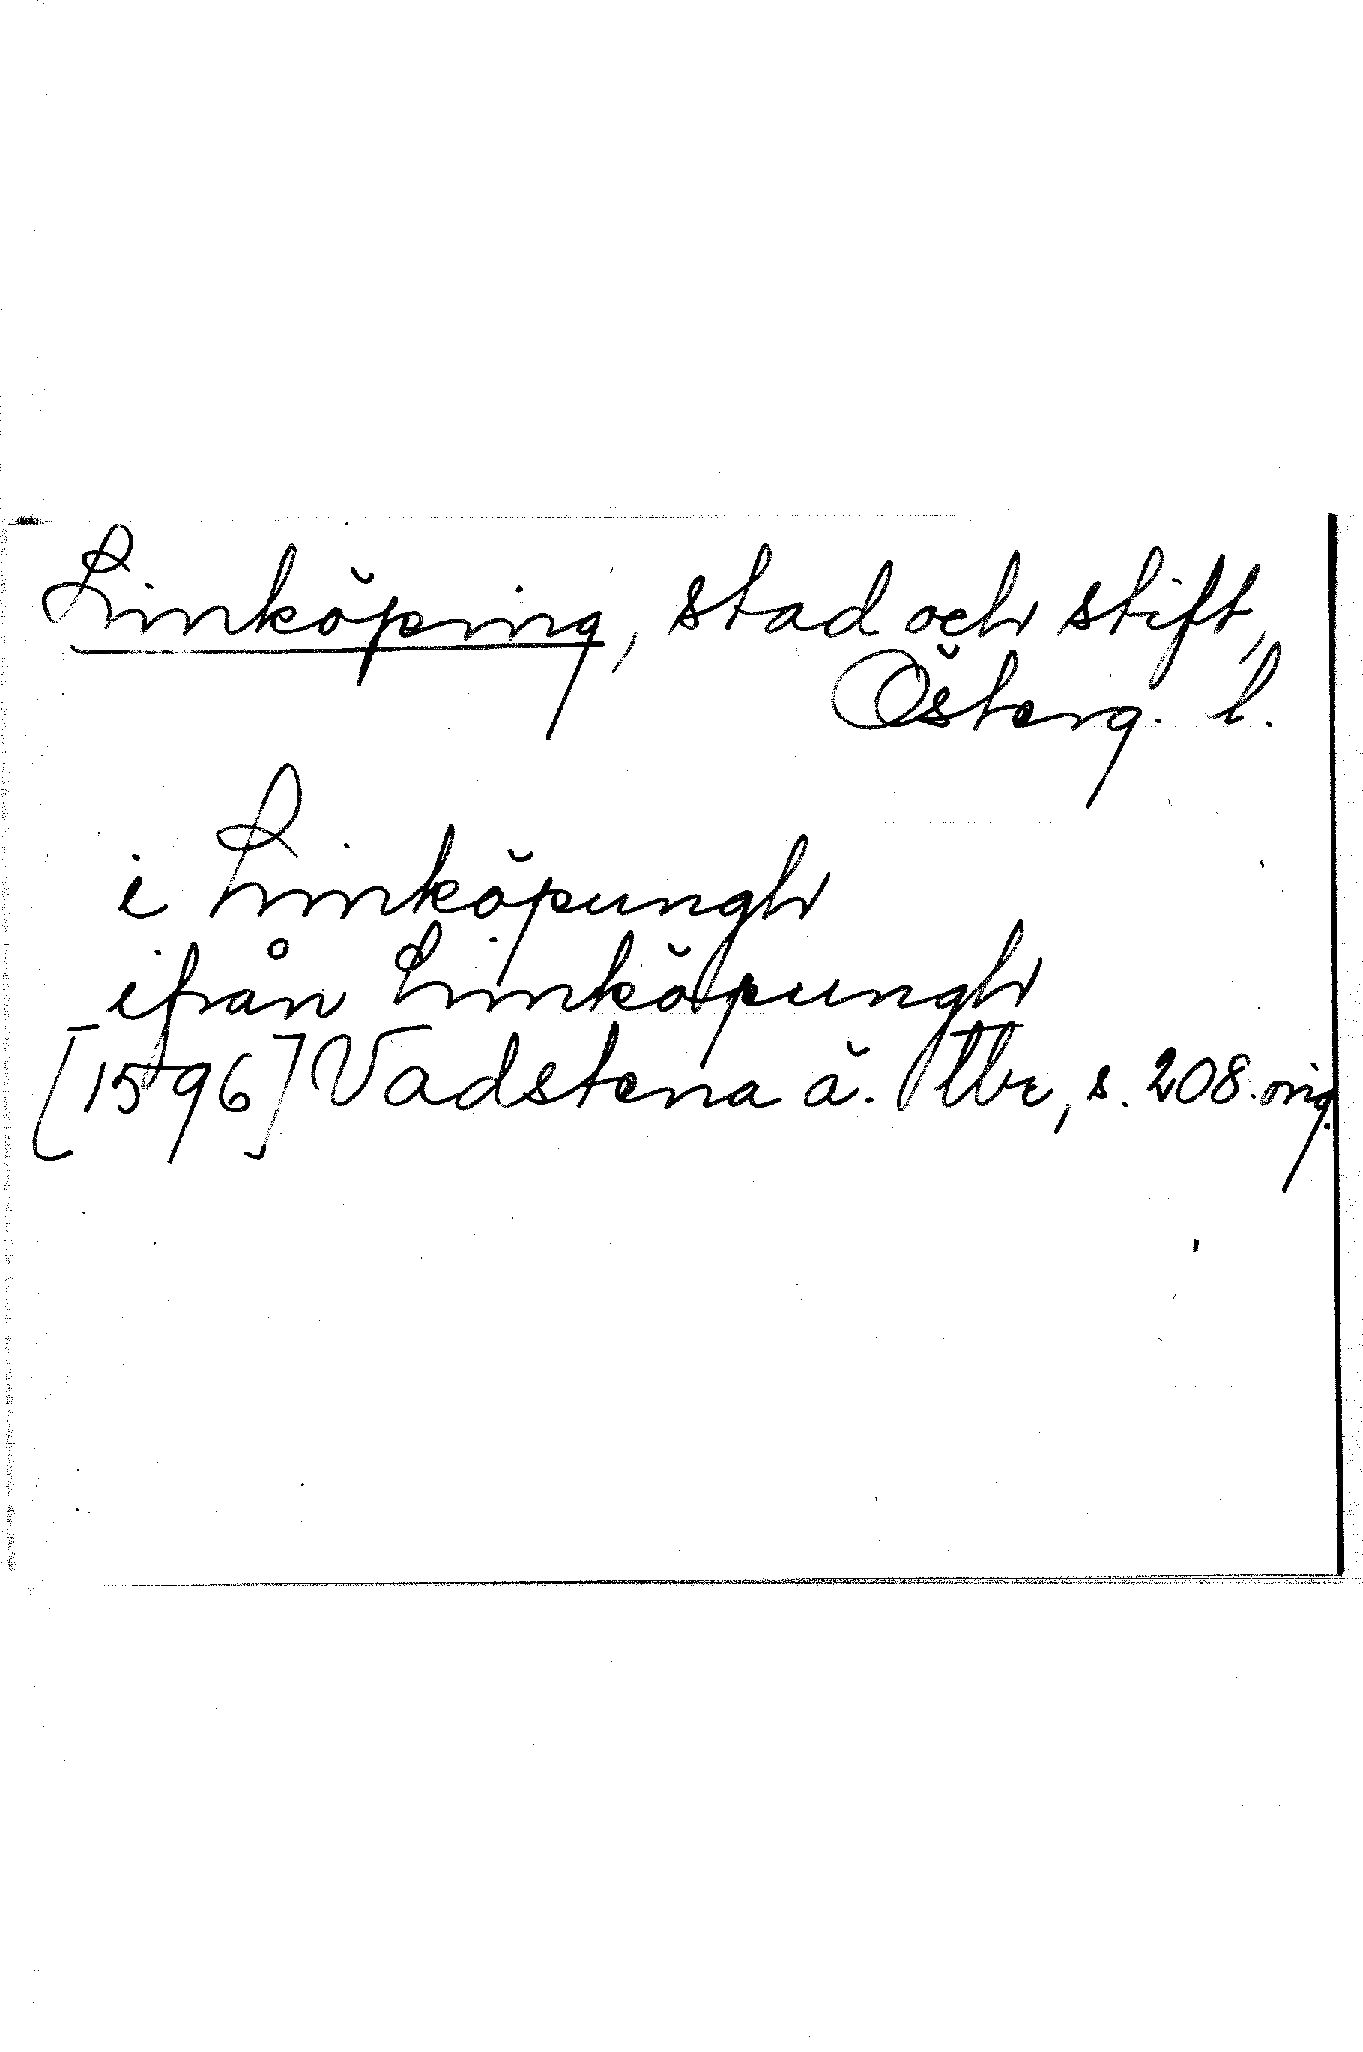 Linköping, stad och stift,
Österg. l.
i Linköpungh
ifrån Linköpungh
[1596] Vadstena ä. tbr, s. 208. orig.